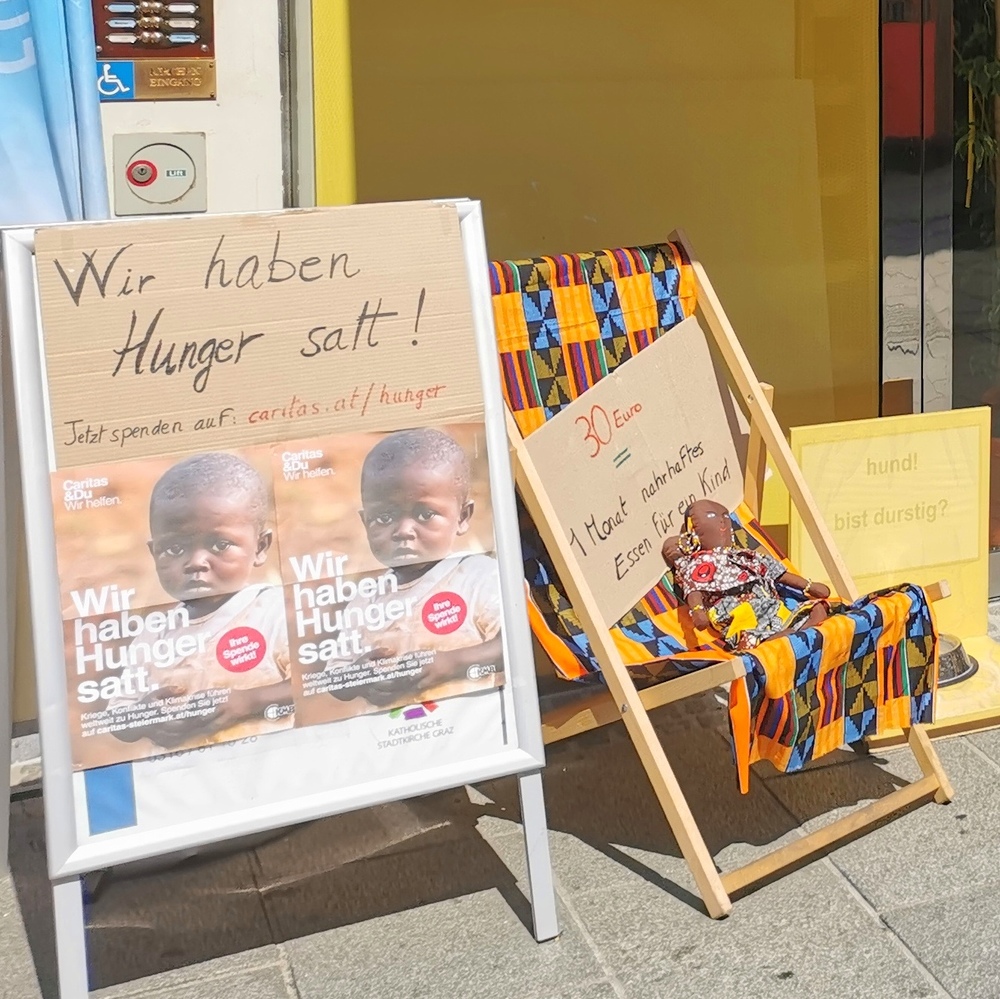 EINGANG
Lift
Wir haben
Hunger satt!
Jetzt spenden auf: caritas.at/hunger
Caritas
&Du
Wir helfen.
Wir
haben
Hunger
satt.
Ihre
Spende
wirkt!
Kriege, Konflikte und Klimakrise führen
weltweit zu Hunger. Spenden Sie jetzt
auf caritas-steiermark.at/hunger
Caritas
&Du
Wir helfen.
Wir
haben
Hunger
satt.
Ihre
Spende
wirkt!
Kriege, Konflikte und Klimakrise führen
weltweit zu Hunger. Spenden Sie jetzt
auf caritas-steiermark.at/hunger
KATHOLISCHE
STADTKIRCHE GRAZ
30 Euro
=
1 Monat nahrhaftes
Essen für ein Kind
hund!
bist durstig?